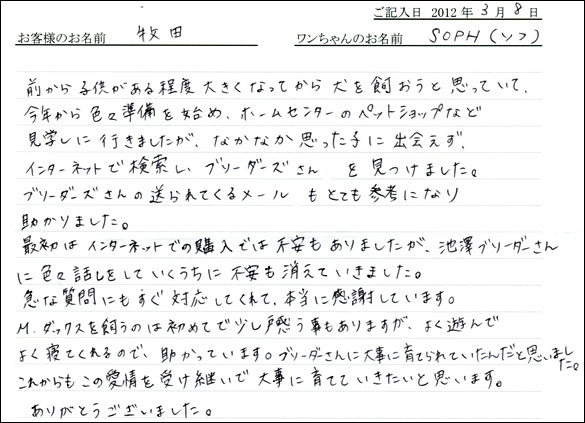 ご記入日 2012年 3月 8日
お客様のお名前 牧田 ワンちゃんのお名前 SOPH(ソフ)
前から子供がある程度大きくなってから犬を飼おうと思っていて、
今年から色々準備を始め、ホームセンターのペットショップなど
見学しに行きましたが、なかなか思った子に出会えず、
インターネットで検索し、ブリーダーズさん を見つけました。
ブリーダーズさんの送られてくるメール もとても参考になり
助かりました。
最初はインターネットでの購入では不安もありましたが、池澤ブリーダーさん
に色々話しをしていくうちに不安も消えていきました。
急な質問にもすぐ対応してくれて、本当に感謝しています。
M.ダックスを飼うのは初めてで少し戸惑う事もありますが、よく遊んで
よく寝てくれるので、助かっています。ブリーダーさんに大事に育てられていたんだと思いました。
これからもこの愛情を受け継いで大事に育てていきたいと思います。
ありがとうございました。